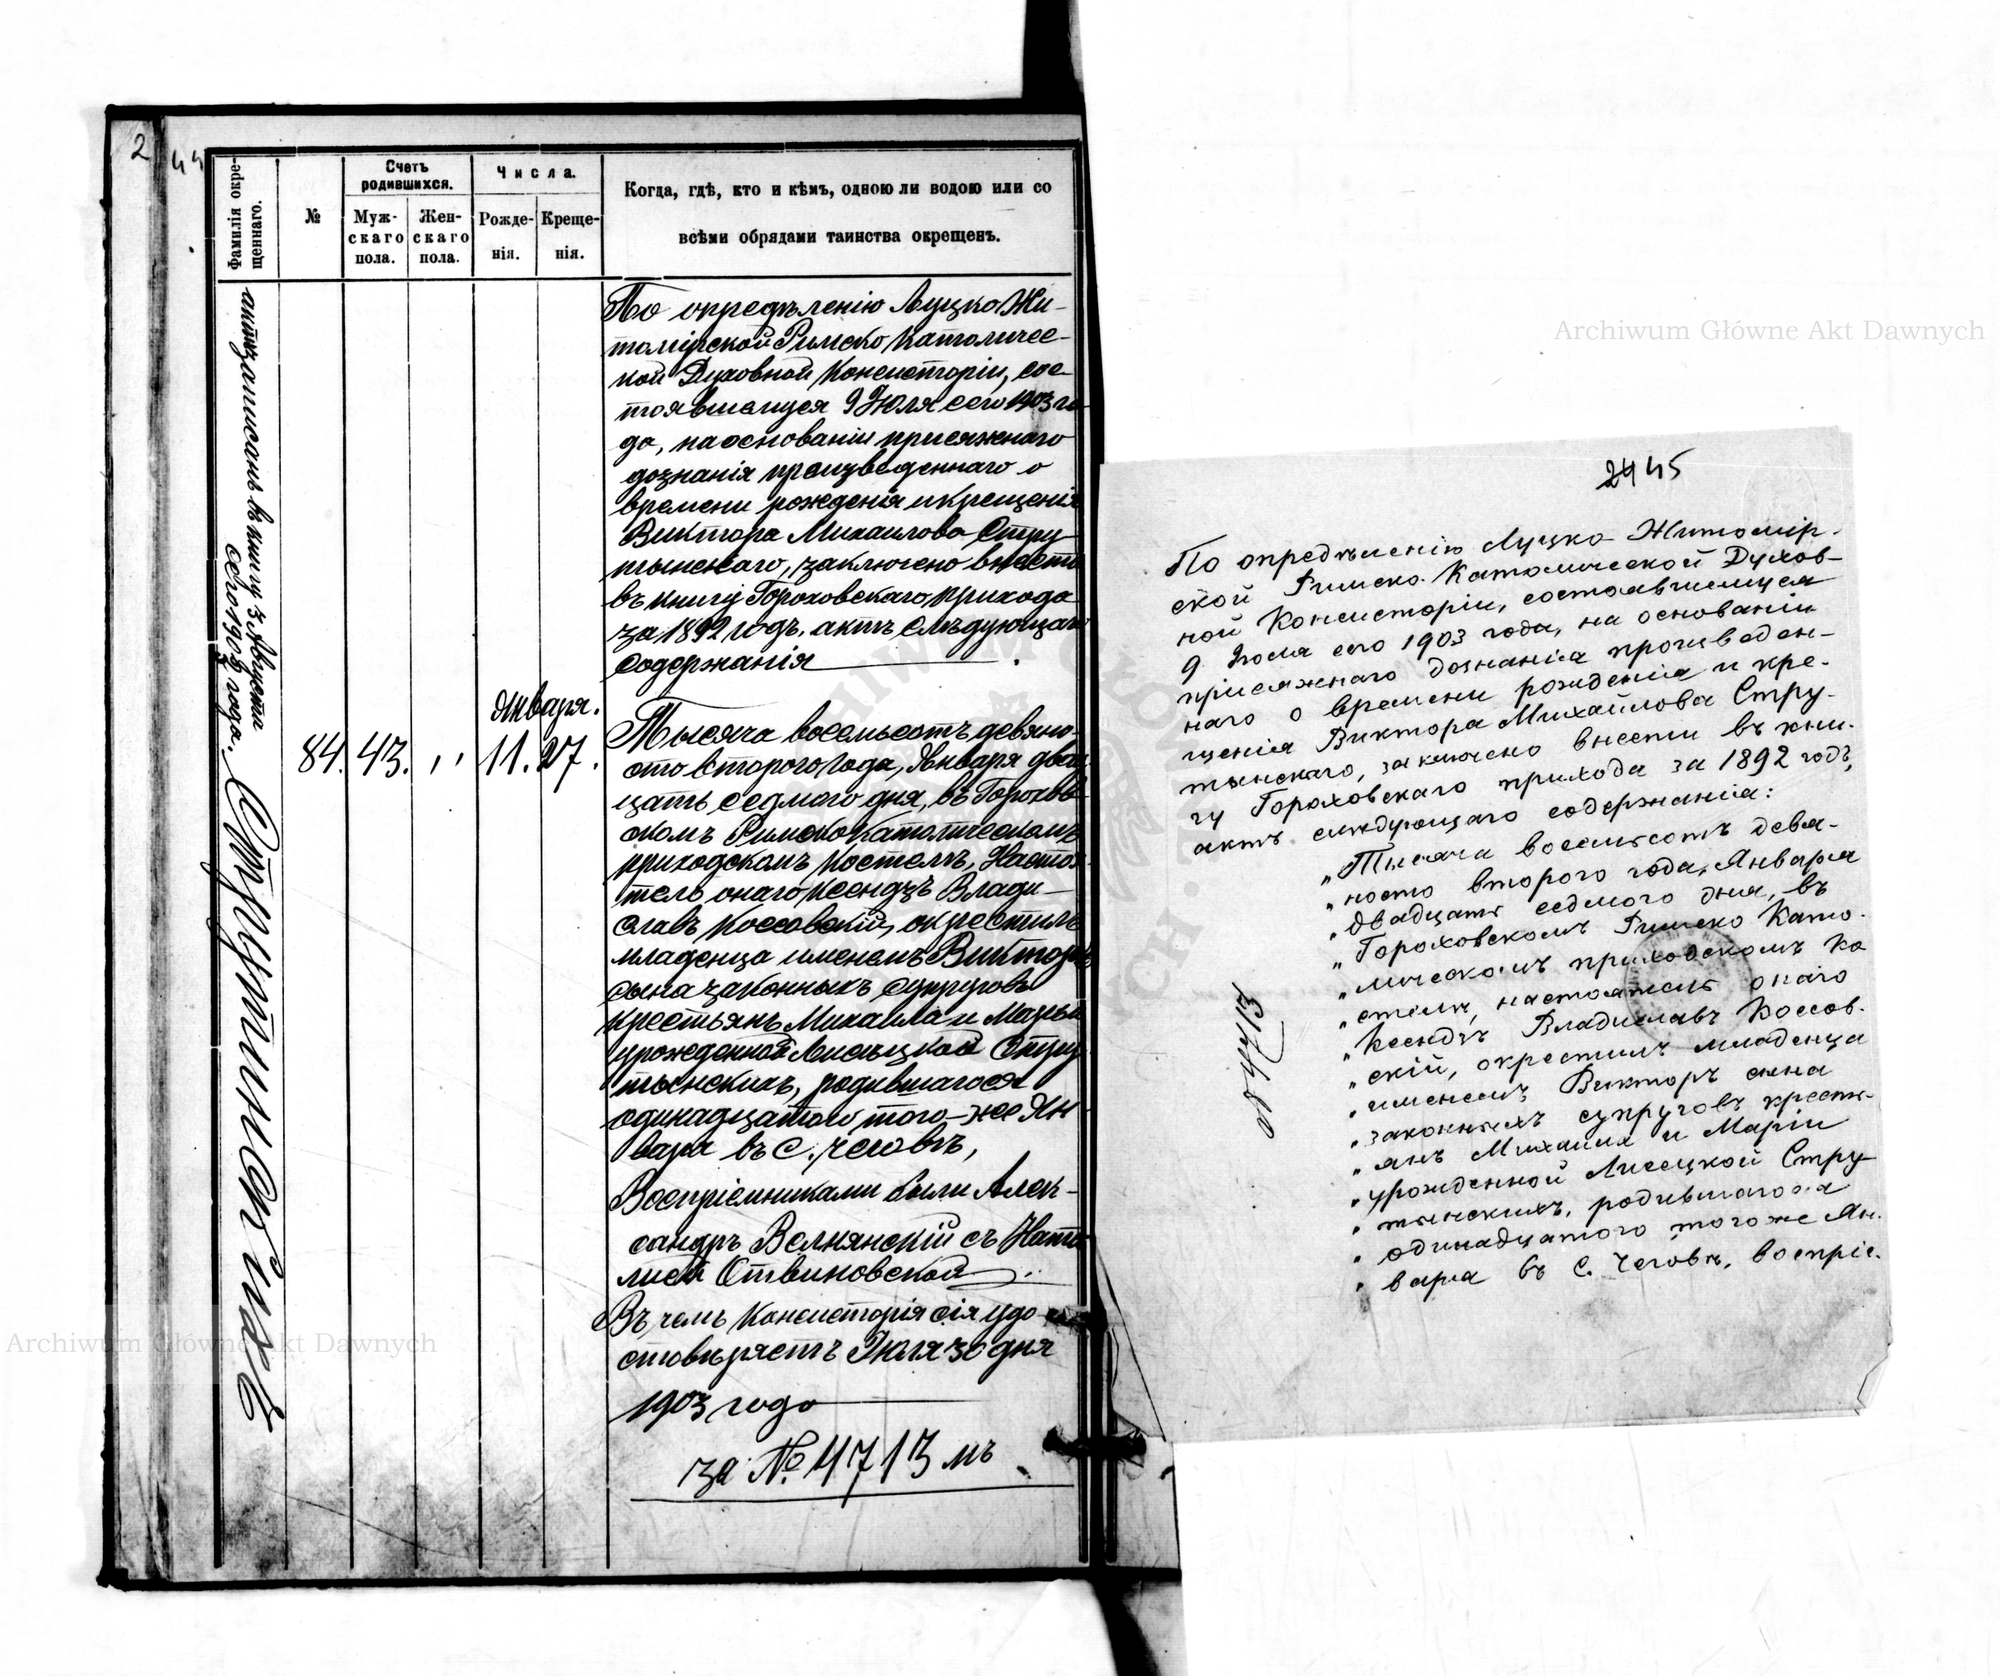 2
44
Фамилія окре-
щеннаго.
№
Счетъ
родившихся.
Муж-
скаго
пола.
Жен-
скаго
пола.
Числа.
Рожде-
нія.
Креще-
нія.
Когда, гдѣ, кто и кѣмъ, одною ли водою или со
всѣми обрядами таинства окрещенъ.
актъ записанъ въ книгу 3 Августа
сего 1903 года.
Струтинскій
84.
43.
"
Января.
11. 27.
По опредѣленію Луцко Жи-
томірской Римско Католичес-
кой Духовной Консисторіи, сос-
тоявшемуся 9 Іюля сего 1903 го
да, на основаніи присяжнаго
дознанія произведеннаго о
времени рожденія и крещенія
Виктора Михаилова Стру
тынскаго, заключено внести
въ книгу Гороховскаго прихода
за 1892 годъ, актъ слѣдующаго
содержанія
Тысяча восемьсотъ девяно-
сто второго года, Января двад
цать седмого дня, въ Горохов
скомъ Римско Католическомъ
приходскомъ костелѣ, Настоя
тель онаго ксендзъ Влади-
славъ Коссовскій, окрестилъ
младенца именемъ Викторъ
сына законныхъ супруговъ
крестьянъ Михаила и Маріи
урожденной Лисецкой Стру
тынскихъ, родившагося
одинадцатого того-же Ян
варя въ с. Чеговѣ,
Воспріемниками были Алек-
сандръ Велнянскій съ Ната
ліей Ствиновской
Въ чемъ Консисторія сія удо-
стовѣряетъ Іюля 30 дня
1903 года
за № 4713 мъ
45
По опредѣленію Луцко-Житомір-
ской Римско-Католической Духов-
ной Консисторіи, состоявшемуся
9 Іюля сего 1903 года, на основаніи
присяжнаго дознанія произведен-
наго о времени рожденія и кре-
щенія Виктора Михайлова Стру-
тынскаго, заключено внести въ кни-
гу Гороховскаго прихода за 1892 годъ,
актъ слѣдующаго содержанія:
"Тысяча восемьсотъ девя-
"носто второго года, Января
"двадцать седмого дня, въ
"Гороховскомъ Римско Като-
"лическомъ приходскомъ ко
"стелѣ, настоятель онаго
"Ксендзъ Владиславъ Коссов-
"скій, окрестилъ младенца
"именемъ Викторъ сына
"законныхъ супруговъ кресть-
"янъ Михаила и Маріи
"урожденной Лисецкой Стру
"тынскихъ, родившагося
"одинадцатого того же Ян-
"варя въ с. Чеговѣ, воспріе-
№ 4713
Archiwum Główne Akt Dawnych
Archiwum Główne Akt Dawnych